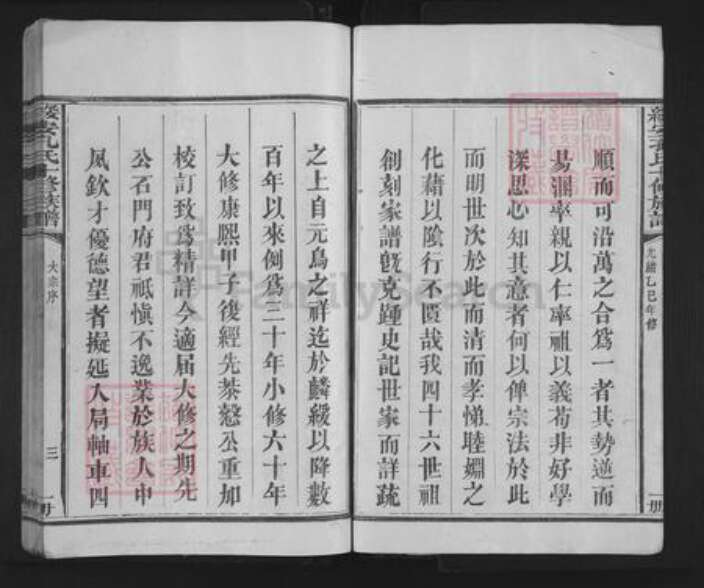 綏安孔氏十修族譜
光緒乙巳年修
一册
順而可沿萬之合爲一者其勢逆而
易溷率親以仁率祖以義苟非好學
深思心知其意者何以俾宗法於此
而明世次於此而清而孝悌睦婣之
化藉以陰行不匱哉我四十六世祖
創刻家譜旣克踵史記世家而詳䟽
之上自元鳥之祥迄於麟紱以降數
百年以來例爲三十年小修六十年
大修康熙甲子後經先恭慤公重加
校訂致爲精詳今適屆大修之期先
公石門府君祗愼不逸業於族人中
夙欽才優德望者擬延入局軸車四
綏安孔氏十修族譜
大宗序
三
一册
FamilySearch